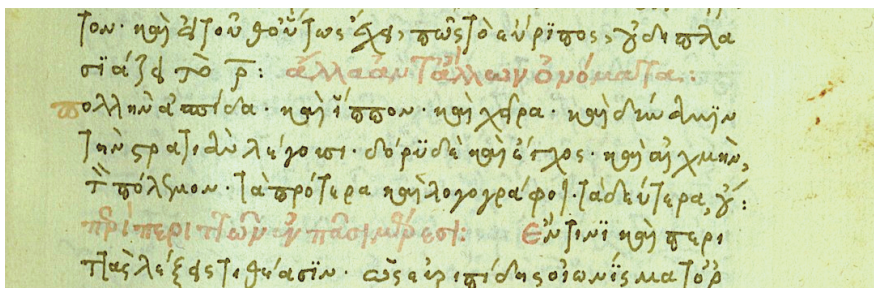 τον· καὶ εἰ τοῦθ' οὕτως ἔχει, πῶς τὸ εὔριπος, οὐ διπλα
σϊάζει τὸ ρ: ἄλλα ἀντ' ἄλλων ὀνόματα:
πολλὴν ἀσπίδα· καὶ ἵππον· καὶ χεῖρα· καὶ δύναμϊν
τὴν στρατιὰν λέγουσι· δόρϋ δὲ καὶ ξίφος· καὶ αἰχμὴν,
τὸν πόλεμον· τὰ πρότερα καὶ λογογράφοι· τὰ δεύτερα, οὔ:
περὶ περιττῶν ἐν πᾶσι μέρεσι: Ἐντϊνϊ καὶ περι
ττὰς λέξεις τιθέασϊν· ὡς εὐριπίδης οἰωνϊσματ' ὀρ